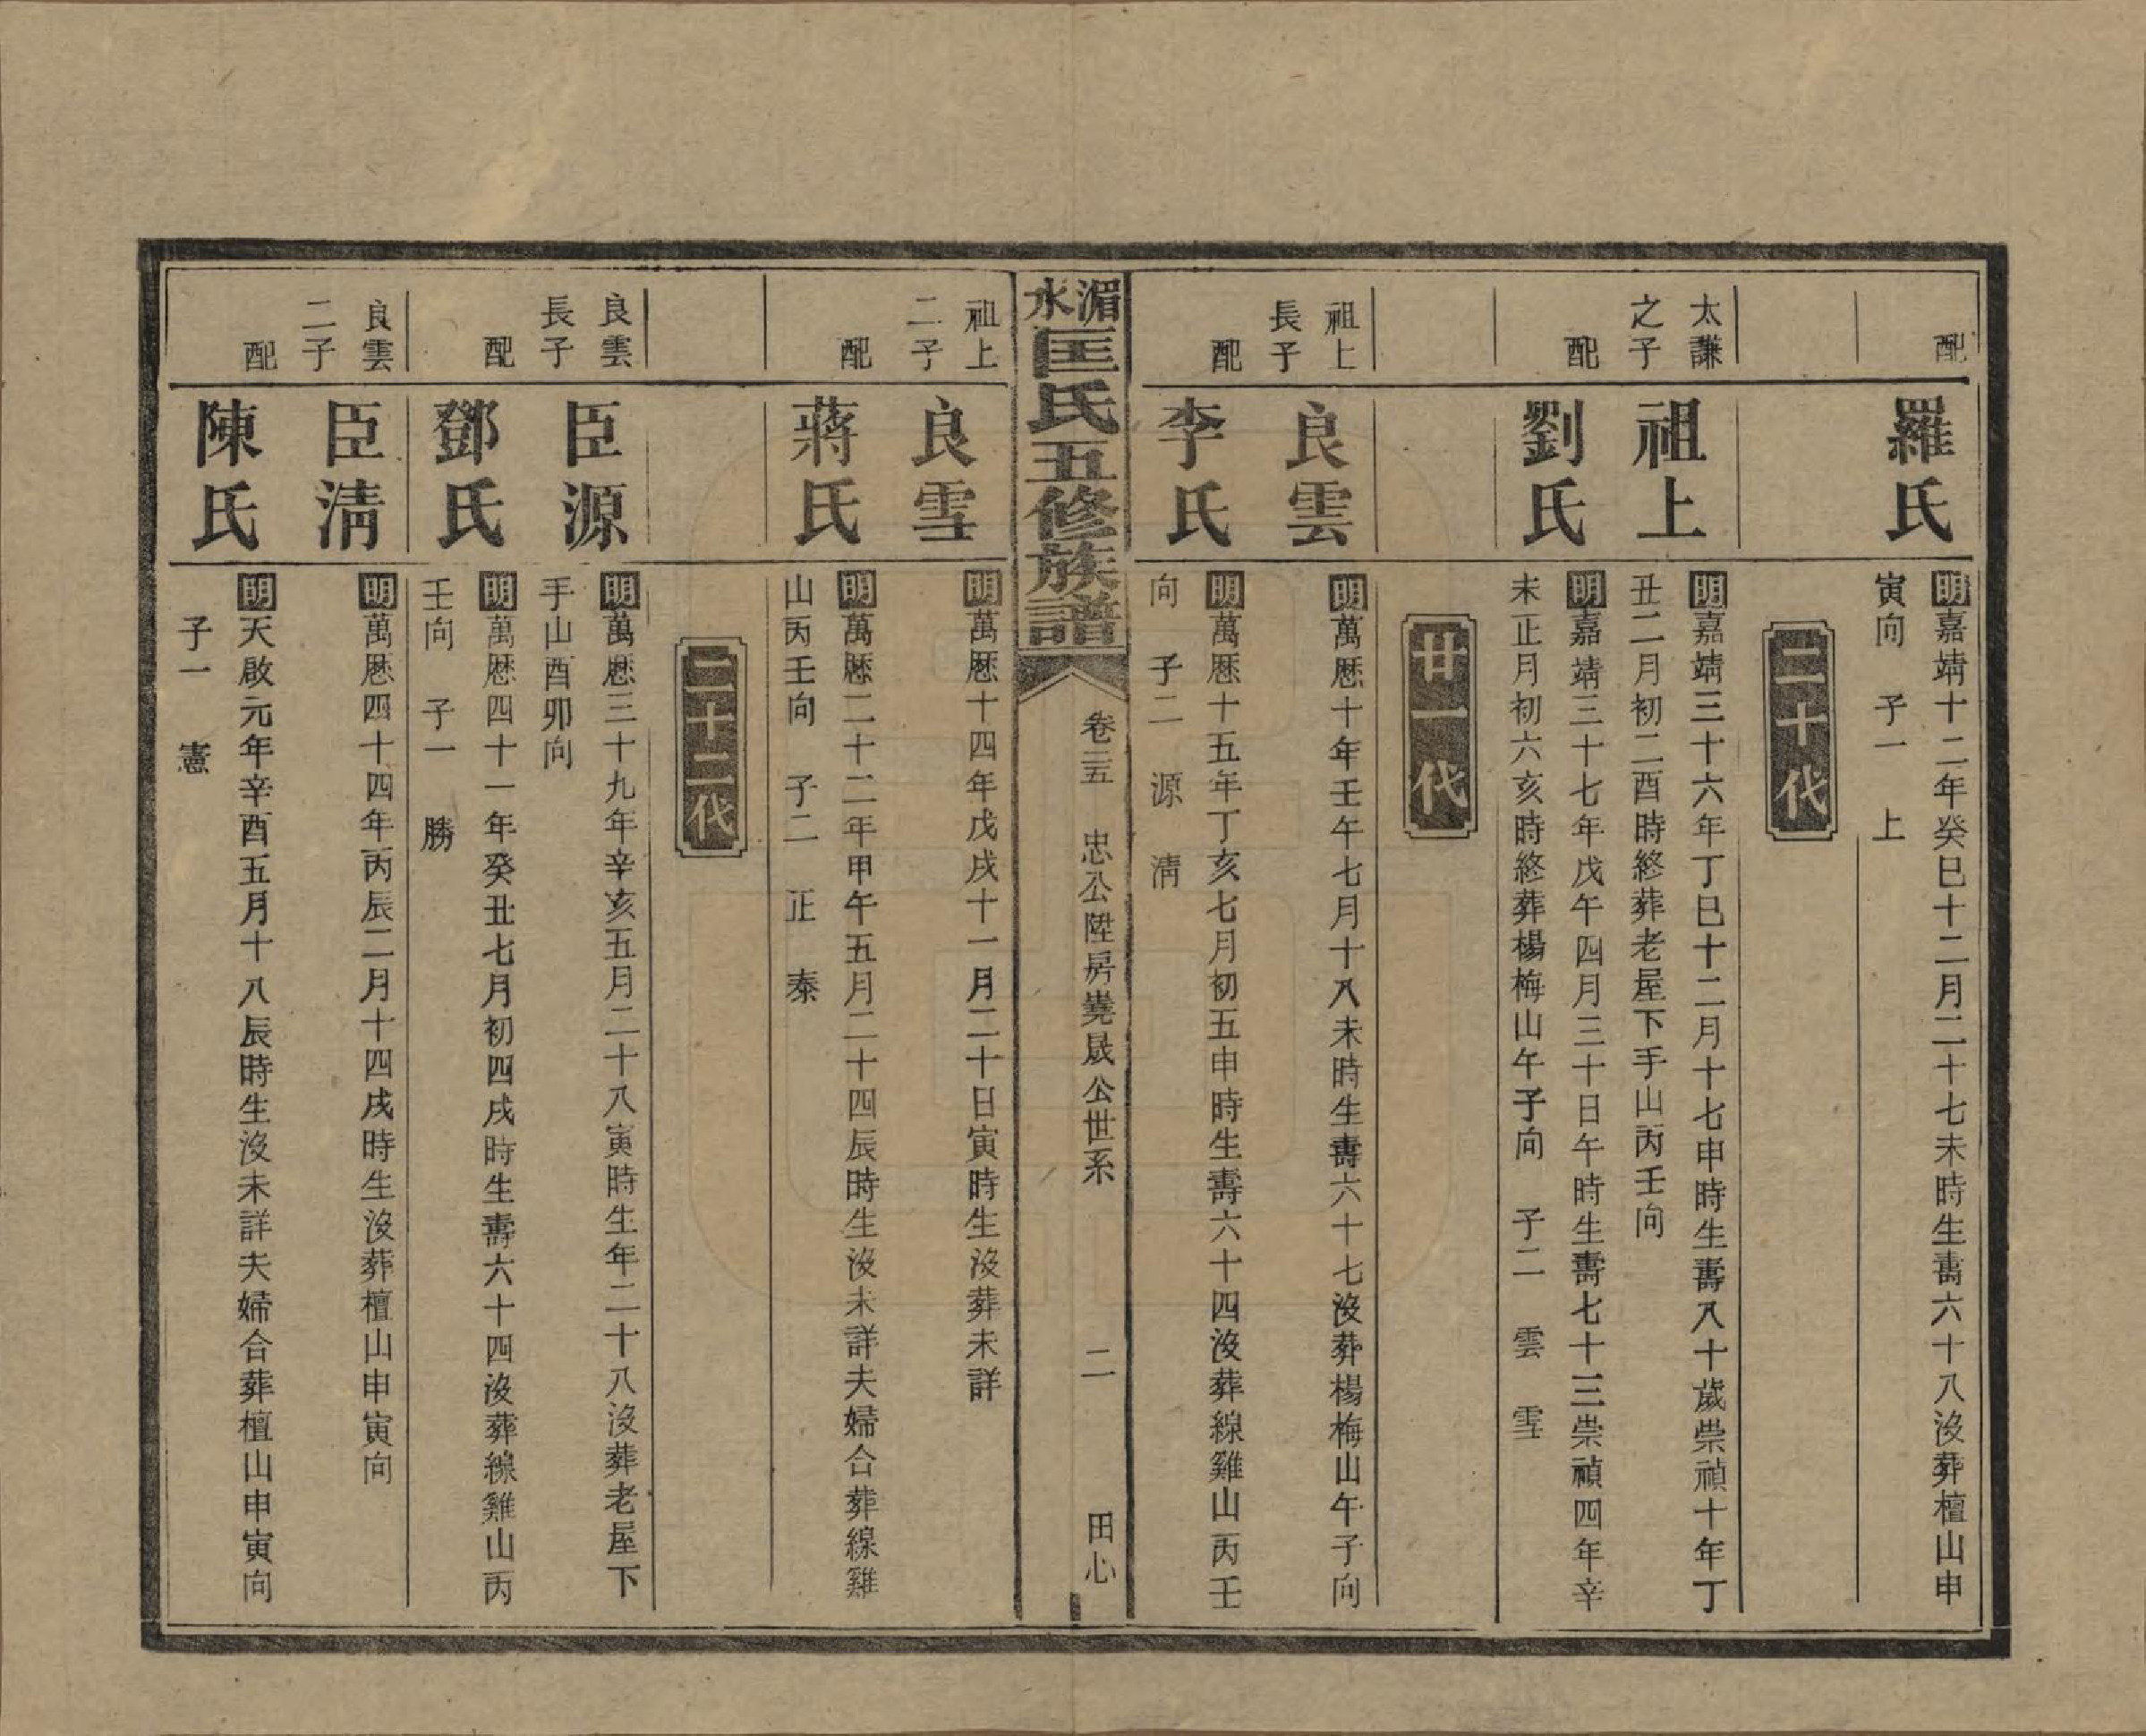 配
羅氏
明嘉靖十二年癸巳十二月二十七未時生壽六十八沒葬檀山申
寅向 子一 上
二十代
太謙
之子
祖上
明嘉靖三十六年丁巳十二月十七申時生壽八十歲崇禎十年丁
丑二月初二酉時終葬老屋下手山丙壬向
配
劉氏
明嘉靖三十七年戊午四月三十日午時生壽七十三崇禎四年辛
未正月初六亥時終葬楊梅山午子向 子二 雲 雪
廿一代
祖上
長子
良雲
明萬厯十年壬午七月十八未時生壽六十七沒葬楊梅山午子向
配
李氏
明萬厯十五年丁亥七月初五申時生壽六十四沒葬線雞山丙壬
向 子二 源 清
湄水匡氏五修族譜
卷三五 忠公陞房堯晟公世系 二 田心
祖上
二子
良雪
明萬厯十四年戊戌十一月二十日寅時生沒葬未詳
配
蔣氏
明萬厯二十二年甲午五月二十四辰時生沒未詳夫婦合葬線雞
山丙壬向 子二 正 泰
二十二代
良雲
長子
臣源
明萬厯三十九年辛亥五月二十八寅時生年二十八沒葬老屋下
手山酉卯向
配
鄧氏
明萬厯四十一年癸丑七月初四戌時生壽六十四沒葬線雞山丙
壬向 子一 勝
良雲
二子
臣清
明萬厯四十四年丙辰二月十四戌時生沒葬檀山申寅向
配
陳氏
明天啟元年辛酉五月十八辰時生沒未詳夫婦合葬檀山申寅向
子一 憲